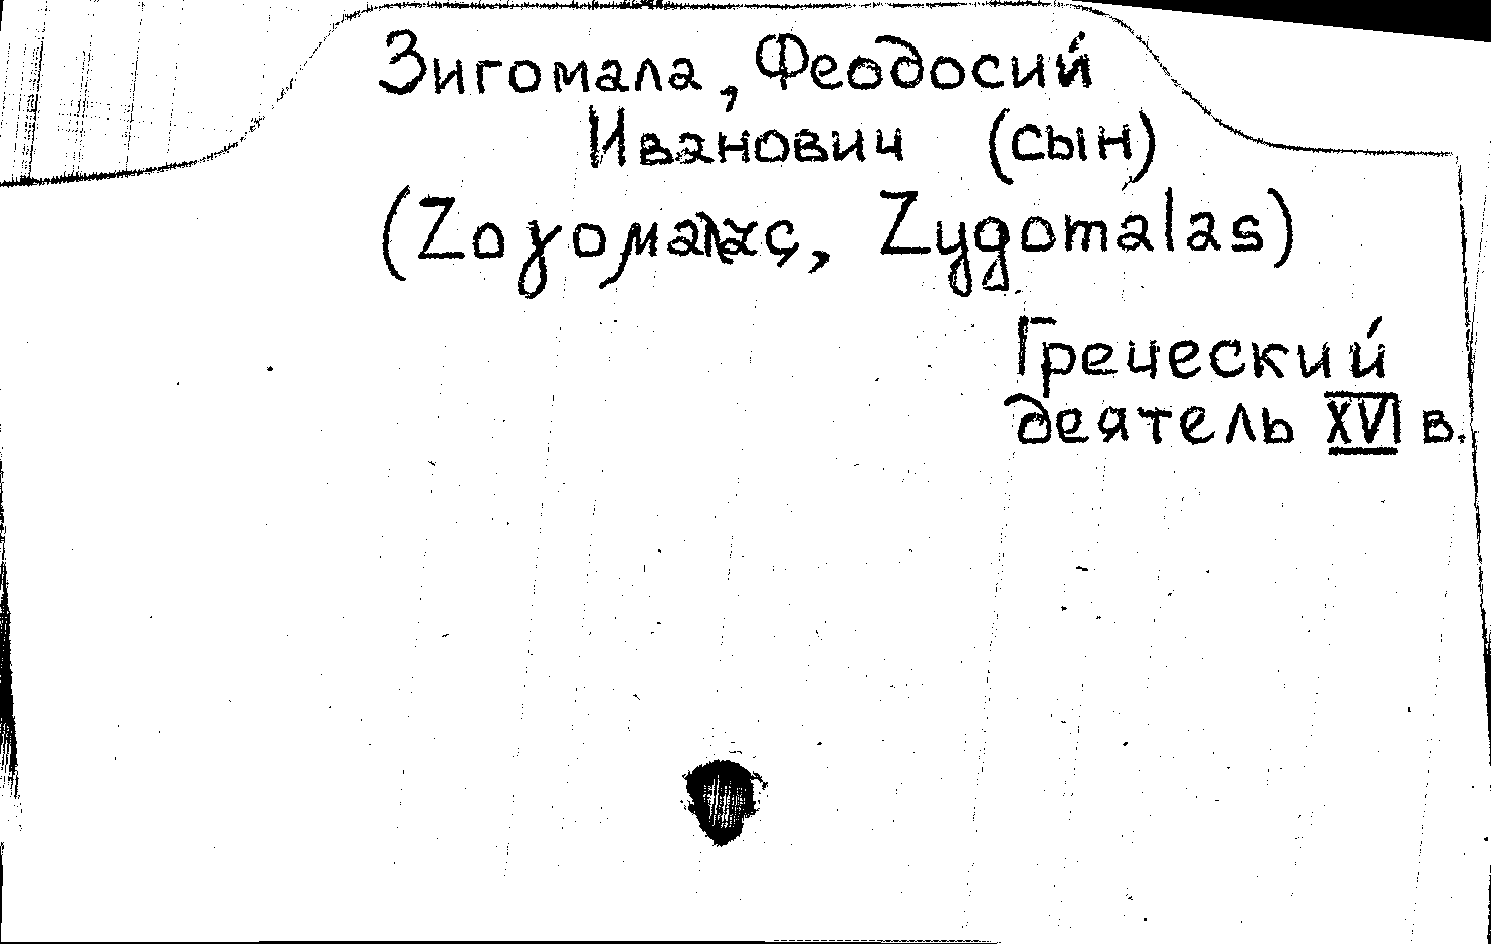 Зигомала, Феодосий
Иванович (сын)
(Ζογομαλας, Zygomalas)
Греческий
деятель XVI в.